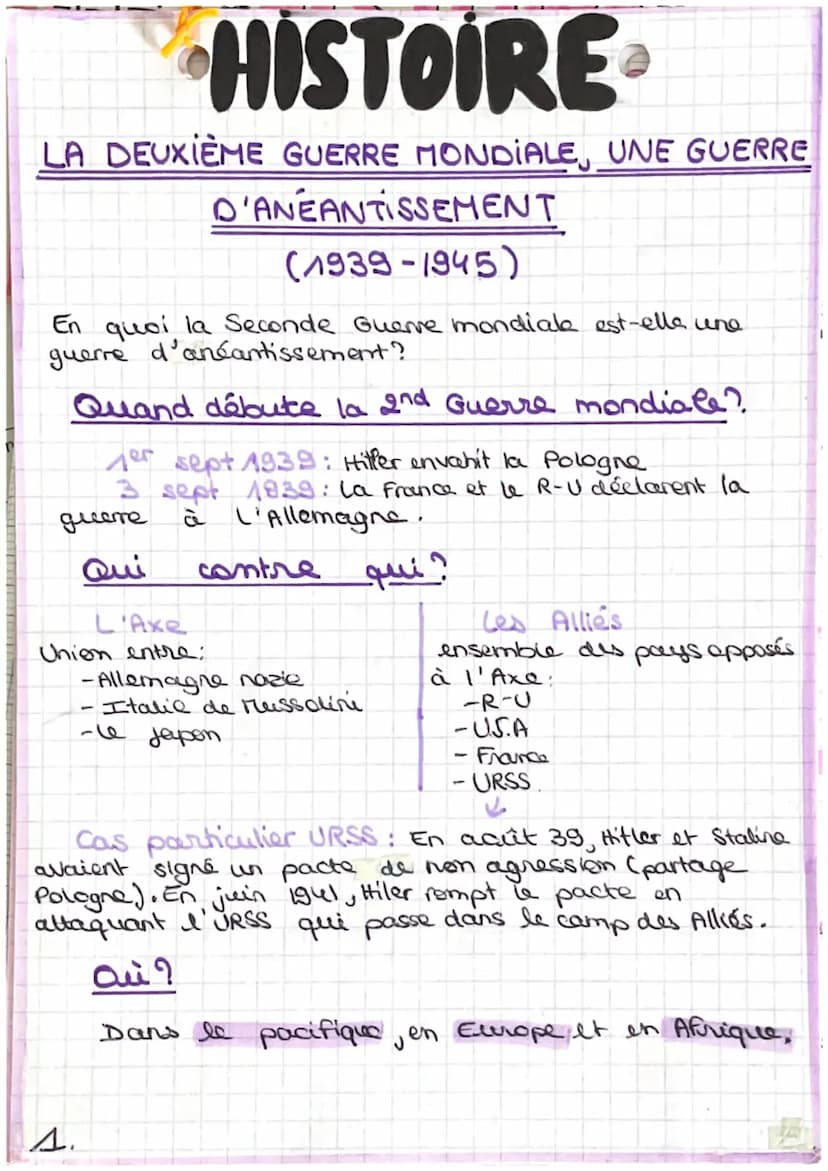 HISTOIRE
LA DEUXIÈME GUERRE MONDIALE, UNE GUERRE
D'ANÉANTISSEMENT
(1939-1945)
En quoi la Seconde Guerre mondiale est-elle une
guerre d'anéantissement?
Quand débute la 2nd Guerre mondiale?
1er sept 1939: Hitler envahit la Pologne
3 sept 1939: La France et le R-U déclarent la
guerre à L'Allemagne.
Qui contre qui?
L'Axe
Union entre:
-Allemagne nazie
- Italie de Mussolini
-le Japon
Les Alliés
ensemble des pays opposés
à l'Axe:
-R-U
-U.S.A
- France
- URSS
Cas particulier URSS: En août 39, Hitler et Staline
avaient signé un pacte de non agression (partage
Pologne). En juin 1941, Hiler rompt le pacte en
attaquant l'URSS qui passe dans le camp des Alliés.
Où?
Dans le pacifique, en Europe, et en Afrique.
1.